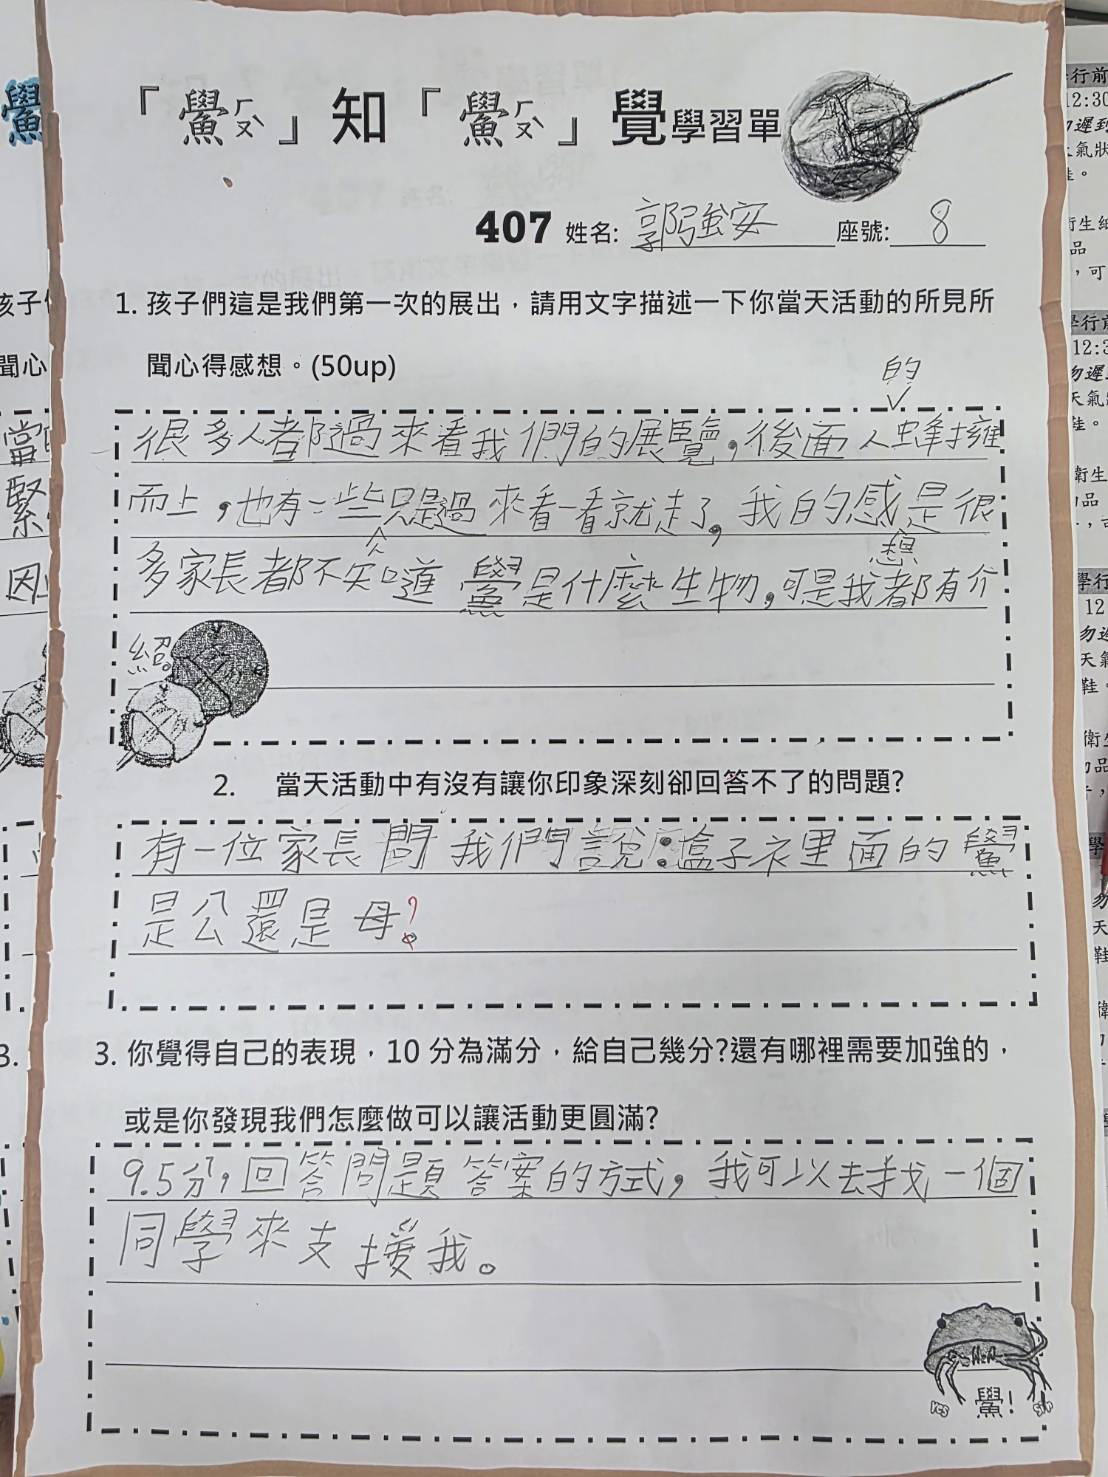 「鱟ㄏㄡˋ」知「鱟ㄏㄡˋ」覺學習單
407 姓名: 郭強安 座號: 8
1. 孩子們這是我們第一次的展出，請用文字描述一下你當天活動的所見所
聞心得感想。(50up)
的
很多人都過來看我們的展覽，後面人蜂擁
而上，也有一些只是過來看一看就走了。我的感是很
想
多家長都不知道鱟是什麼生物。可是我都有介
紹。
2. 當天活動中有沒有讓你印象深刻卻回答不了的問題?
有一位家長問我們說：盒子裡面的鱟
是公還是母?
3. 你覺得自己的表現，10 分為滿分，給自己幾分?還有哪裡需要加強的，
或是你發現我們怎麼做可以讓活動更圓滿?
9.5分，回答問題答案的方式，我可以去找一個
同學來支援我。
鱟!